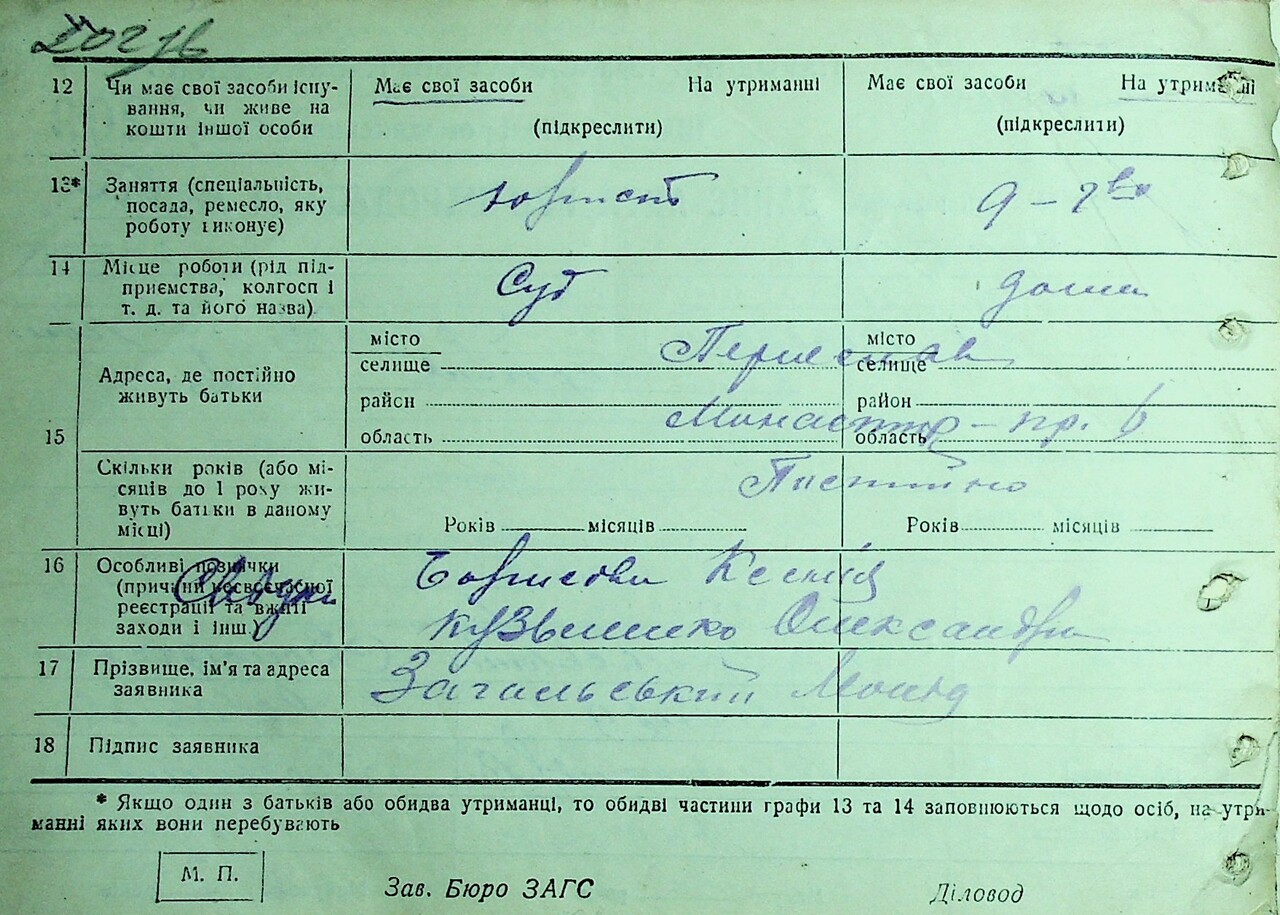 12 Чи має свої засоби існу-
вання, чи живе на
кошти іншої особи
Має свої засоби На утриманні
(підкреслити)
Має свої засоби На утриманні
(підкреслити)
13* Заняття (спеціальність,
посада, ремесло, яку
роботу виконує)
юрист
14 Місце роботи (рід під-
приємства, колгосп і
т. д. та його назва)
Суд
дома
15 Адреса, де постійно
живуть батьки
місто
селище
район
область
місто
селище
район
область
Переяслав
Скільки років (або мі-
сяців до 1 року жи-
вуть батьки в даному
місці)
Постійно
Років місяців
Років місяців
16 Особливі позначки
(причини несвоєчасної
реєстрації та вжиті
заходи і інш.)
Свідки
Борисова Ксенія
Кузьменко Олександра
17 Прізвище, ім'я та адреса
заявника
Загальський
18 Підпис заявника
* Якщо один з батьків або обидва утриманці, то обидві частини графи 13 та 14 заповнюються щодо осіб, на утри-
манні яких вони перебувають
М. П.
Зав. Бюро ЗАГС
Діловод